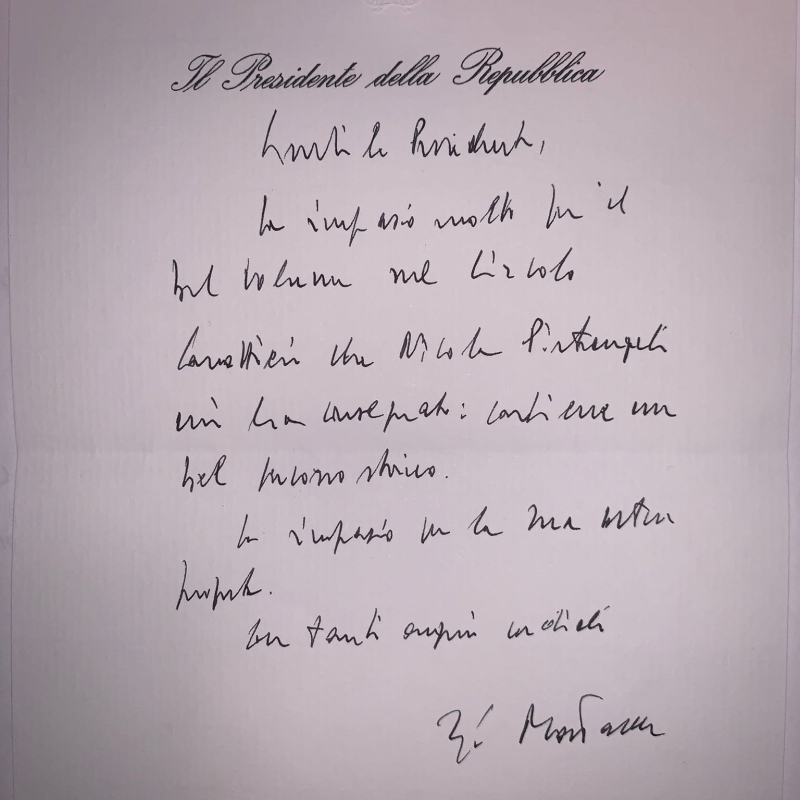 Il Presidente della Repubblica
Gentile Presidente,
La ringrazio molto per il
bel volume sul Circolo
Canottieri che Nicola Pietrangeli
mi ha consegnato: contiene un
bel percorso storico.
La ringrazio per la Sua
Con tanti auguri cordiali